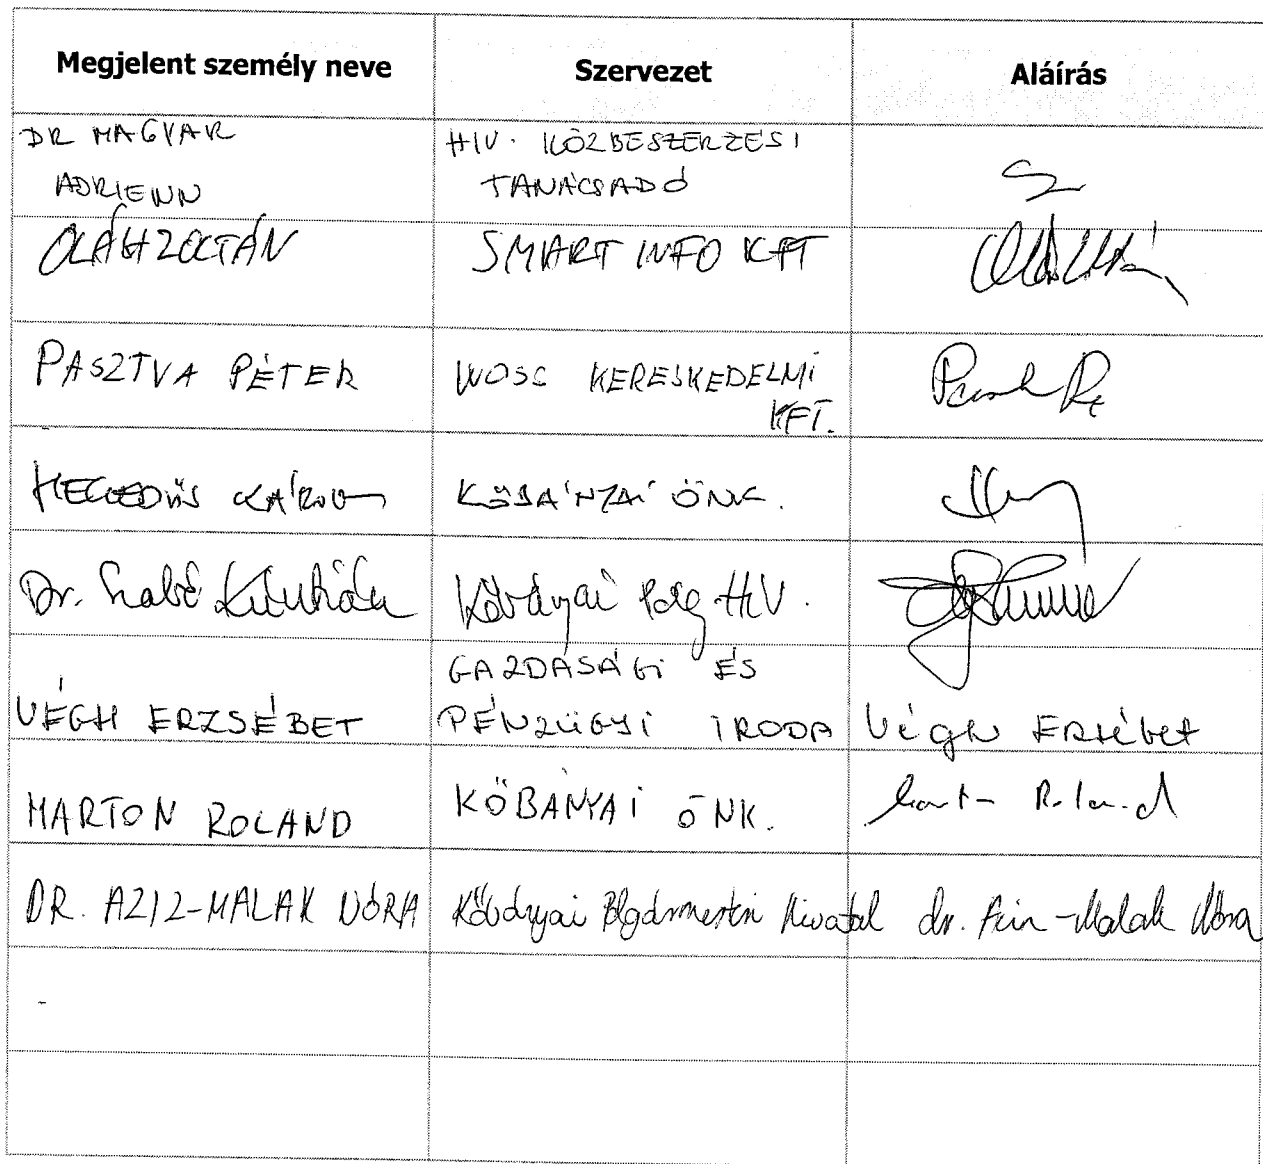 Megjelent személy neve Szervezet Aláírás
DR MAGYAR HIV. KÖZBESZERZÉSI
ADRIENN TANÁCSADÓ
OLÁH ZOLTÁN SMART INFO KFT
PASZTVA PÉTER WOSC KERESKEDELMI
KFT.
HEGEDŰS KÁROLY KŐBÁNYAI ÖNK.
Dr. Szabó Krisztián Kőbányai Polg Hiv.
GAZDASÁGI ÉS
VÉGH ERZSÉBET PÉNZÜGYI IRODA Végh Erzsébet
MARTON ROLAND KŐBÁNYAI ÖNK. Marton Roland
DR. AZIZ-MALAK NÓRA Kőbányai Polgármesteri Hivatal dr. Aziz-Malak Nóra